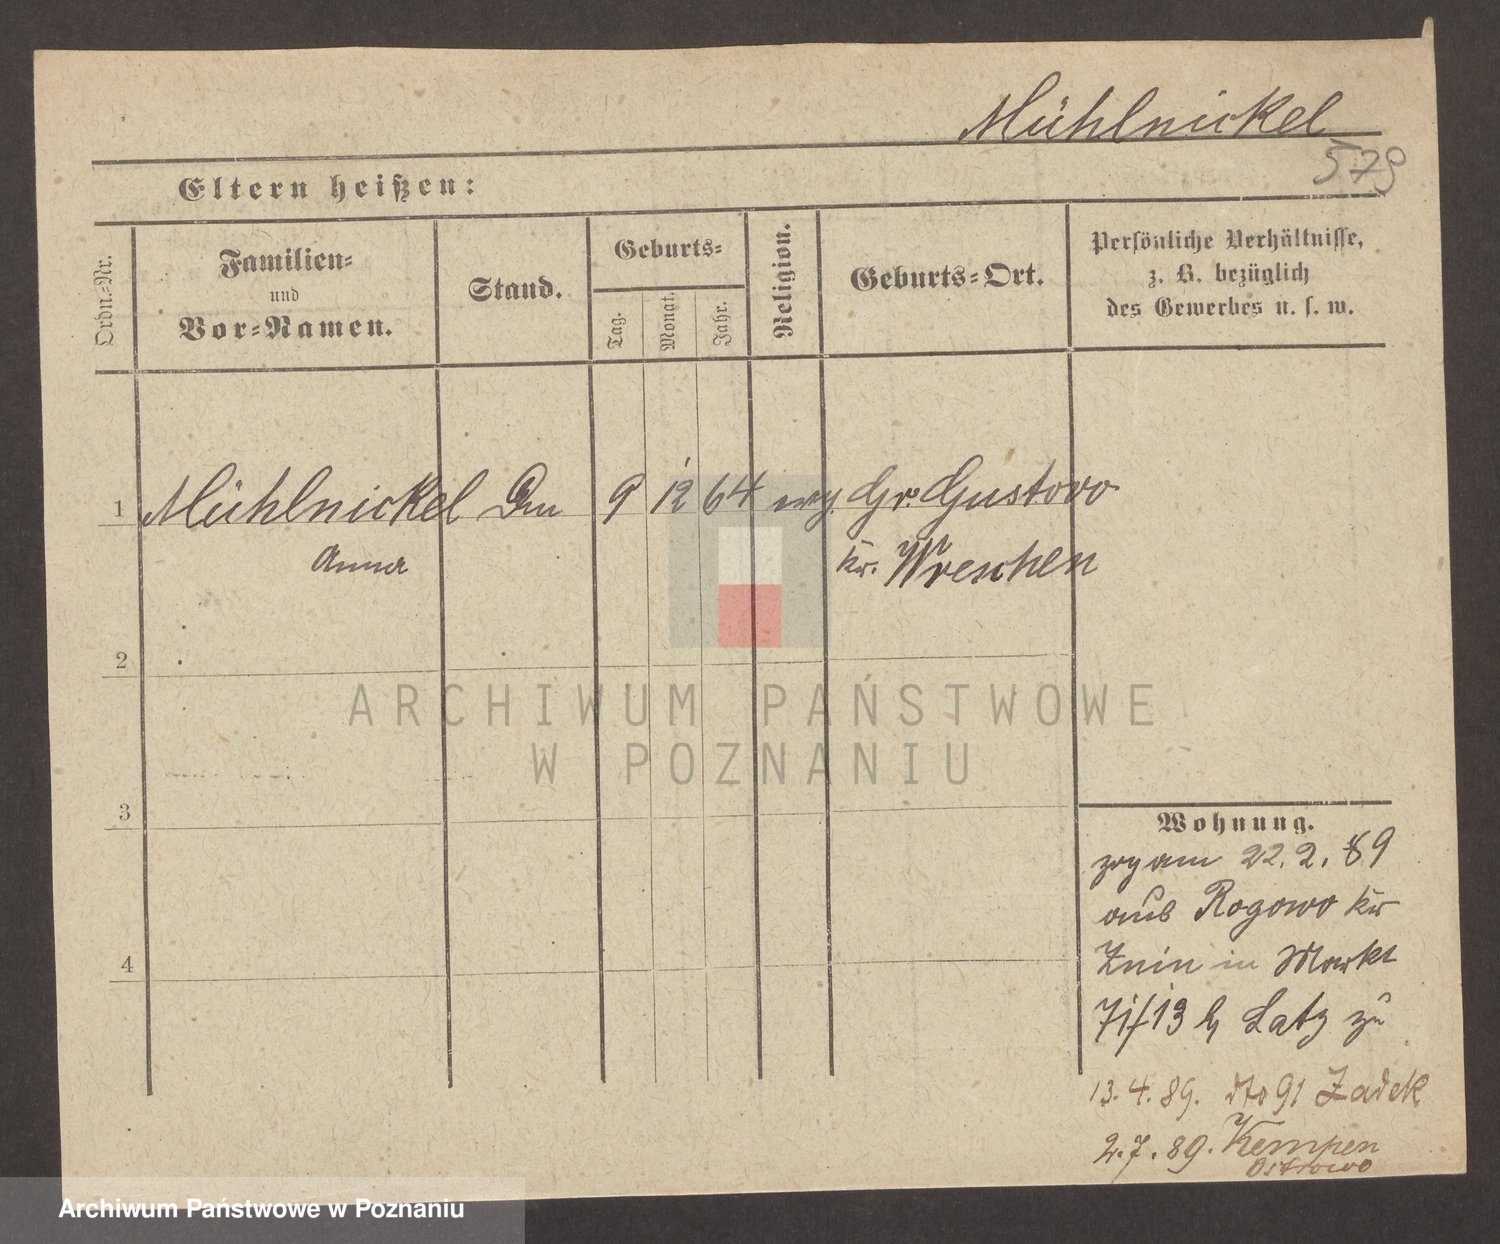 Mühlnickel
579
Eltern heißen:
Ordn.-Nr.
Familien-
und
Vor-Namen.
Stand.
Geburts-
Tag.
Monat.
Jahr.
Religion.
Geburts-Ort.
Persönliche Verhältnisse,
z. B. bezüglich
des Gewerbes u. s. w.
1 Mühlnickel 9 12 64 evg. Gr. Gustovo
Anna kr. Wreschen
2
3
4
Wohnung.
zog am 22. 2. 89
aus Rogowo kr
Znin in Markt
71/13 b Latz zu
13. 4. 89. dto 91 Zadek
2. 7. 89. Kempen
Ostrowo
ARCHIWUM PAŃSTWOWE
W POZNANIU
Archiwum Państwowe w Poznaniu